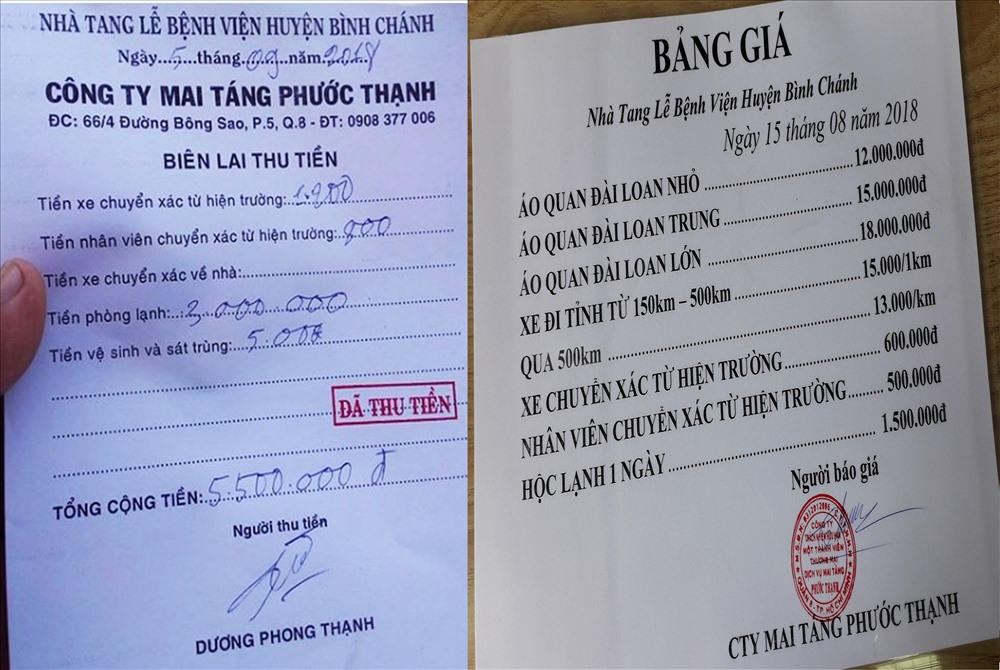 NHÀ TANG LỄ BỆNH VIỆN HUYỆN BÌNH CHÁNH
Ngày...5...tháng..09..năm..2018
CÔNG TY MAI TÁNG PHƯỚC THẠNH
ĐC: 66/4 Đường Bông Sao, P.5, Q.8 - ĐT: 0908 377 006
BIÊN LAI THU TIỀN
Tiền xe chuyển xác từ hiện trường:
Tiền nhân viên chuyển xác từ hiện trường: 800
Tiền xe chuyển xác về nhà:
Tiền phòng lạnh: 3.000.000
Tiền vệ sinh và sát trùng:
ĐÃ THU TIỀN
TỔNG CỘNG TIỀN: 5.500.000 đ
Người thu tiền
DƯƠNG PHONG THẠNH
BẢNG GIÁ
Nhà Tang Lễ Bệnh Viện Huyện Bình Chánh
Ngày 15 tháng 08 năm 2018
ÁO QUAN ĐÀI LOAN NHỎ ........ 12.000.000đ
ÁO QUAN ĐÀI LOAN TRUNG ........ 15.000.000đ
ÁO QUAN ĐÀI LOAN LỚN ........ 18.000.000đ
XE ĐI TỈNH TỪ 150km – 500km ........ 15.000/1km
QUA 500km ........ 13.000/km
XE CHUYỂN XÁC TỪ HIỆN TRƯỜNG ........ 600.000đ
NHÂN VIÊN CHUYỂN XÁC TỪ HIỆN TRƯỜNG ........ 500.000đ
HỘC LẠNH 1 NGÀY ........ 1.500.000đ
Người báo giá
CÔNG TY
TRÁCH NHIỆM HỮU HẠN
MỘT THÀNH VIÊN
THƯƠNG MẠI
DỊCH VỤ MAI TÁNG
PHƯỚC THẠNH
QUẬN 8 - TP. HỒ CHÍ MINH
CTY MAI TÁNG PHƯỚC THẠNH